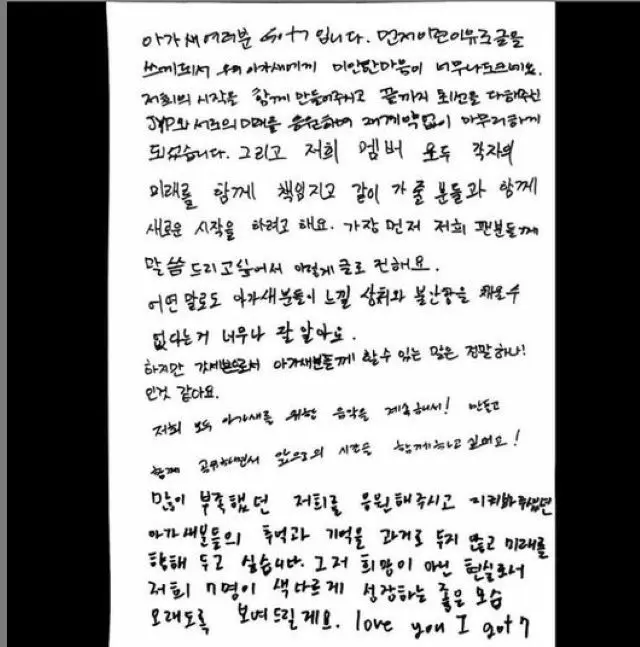 아가새여러분 Got7 입니다. 먼저 이런이유로글을
쓰게되서 우리 아가새에게 미안한마음이 너무나도크네요.
저희의 시작을 함께 만들어주시고 끝까지 최선을 다해주신
JYP와 서로의미래를 응원하며 재계약없이 마무리하게
되었습니다. 그리고 저희 멤버 모두 각자의
미래를 함께 책임지고 같이 가줄분들과 함께
새로운 시작을 하려고 해요. 가장먼저 저희 팬분들께
말씀드리고싶어서 이렇게 글로 전해요.
어떤 말로도 아가새분들이 느낄 상처와 불안함을 채울수
없다는거 너무나 잘 알아요.
하지만 갓세븐으로서 아가새분들께 할수 있는 말은 정말하나!
인것 같아요.
저희 모두 아가새를 위한 음악을 계속해서! 만들고
함께 공유하면서 앞으로의 시간을 함께하고싶어요!
많이 부족했던 저희를 응원해주시고 지켜봐주셨던
아가새분들의 추억과 기억을 과거로 두지 않고 미래를
향해 두고 싶습니다. 그저 희망이 아닌 현실로서
저희 7명이 색다르게 성장하는 좋은 모습
오래도록 보여드릴게요. love you I got7